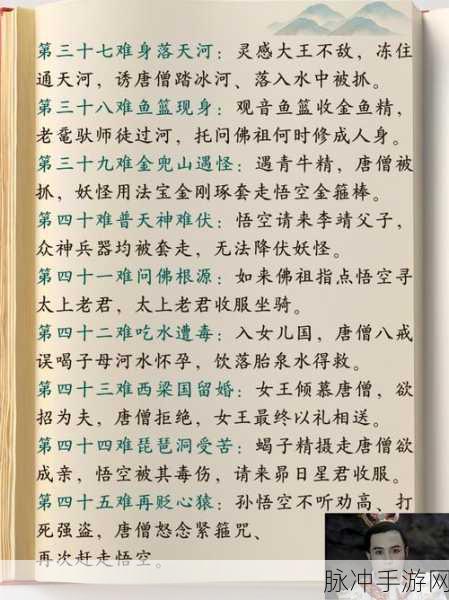 第三十七难身落天河：灵感大王不敌，冻住
通天河，诱唐僧踏冰河、落入水中被抓。
第三十八难鱼篮现身：观音鱼篮收金鱼精，
老鼋驮师徒过河，托问佛祖何时修成人身。
第三十九难金兜山遇怪：遇青牛精，唐僧被
抓，妖怪用法宝金刚琢套走悟空金箍棒。
第四十难普天神难伏：悟空请来李靖父子，
众神兵器均被套走，无法降伏妖怪。
第四十一难问佛根源：如来佛祖指点悟空寻
太上老君，太上老君收服坐骑。
第四十二难吃水遭毒：入女儿国，唐僧八戒
误喝子母河水怀孕，饮落胎泉水得救。
第四十三难西梁国留婚：女王倾慕唐僧，欲
招为夫，唐僧拒绝，女王最终以礼相送。
第四十四难琵琶洞受苦：蝎子精摄走唐僧欲
成亲，悟空被其毒伤，请来昴日星君收服。
第四十五难再贬心猿：孙悟空不听劝高、打
死强盗，唐僧怒念紧箍咒、
再次赶走悟空。
脉冲手游网